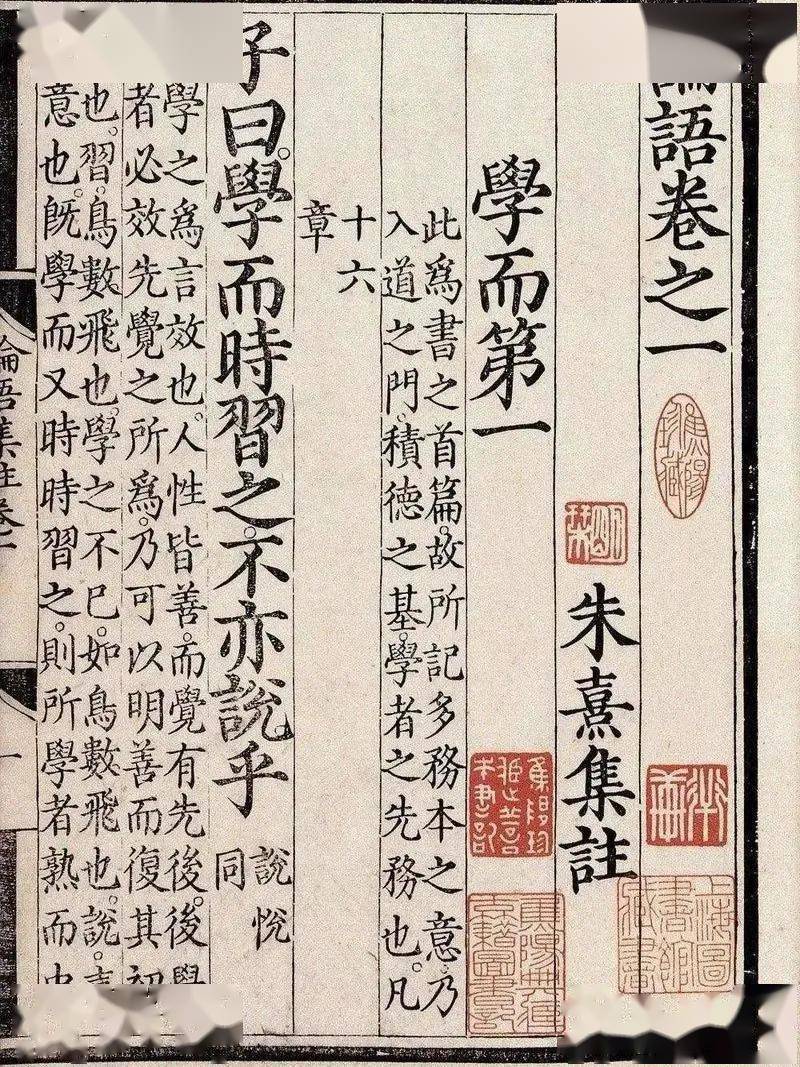 論語卷之一
上海圖書館藏書
朱熹集註
學而第一
此爲書之首篇。故所記多務本之意。乃
入道之門。積德之基。學者之先務也。凡
十六
章
子曰。學而時習之。不亦說乎
說悅
同
學之爲言效也。人性皆善。而覺有先後。後學
者必效先覺之所爲。乃可以明善而復其初
也。習。鳥數飛也。學之不已。如鳥數飛也。說。喜
意也。旣學而又時時習之。則所學者熟而中
論語集註卷一
一